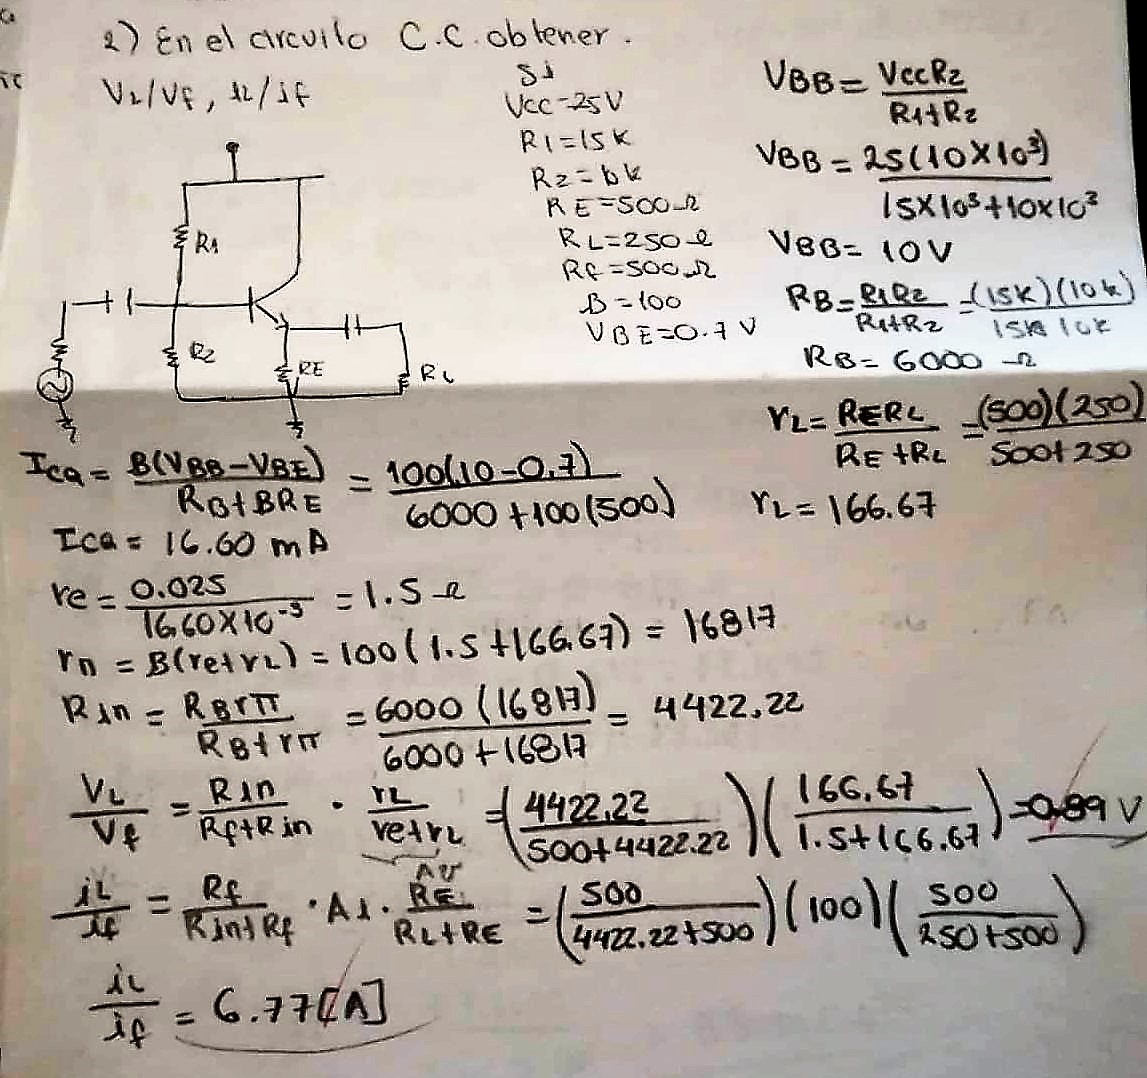 2) En el circuito C.C. obtener.
VL/Vf, iL/if
Si
Vcc=25V
R1=15K
R2=6k
RE=500Ω
RL=250Ω
Rf=500Ω
B=100
VBE=0.7 V
R1
R2
RE
RL
VBB = VccR2 / R1+R2
VBB = 25(10X10³) / 15X10³+10X10³
VBB= 10V
RB= R1R2 / R1+R2 = (15K)(10k) / 15k 10k
RB= 6000 Ω
rL= RERL / RE+RL = (500)(250) / 500+250
rL= 166.67
ICQ = B(VBB-VBE) / RB+BRE = 100(10-0.7) / 6000+100(500)
ICQ = 16.60 mA
re = 0.025 / 16.60X10⁻³ = 1.5Ω
rπ = B(re+rL) = 100(1.5+166.67) = 16817
Rin = RBrπ / RB+rπ = 6000(16817) / 6000+16817 = 4422.22
VL / Vf = Rin / Rf+Rin · rL / re+rL = (4422.22 / 500+4422.22)(166.67 / 1.5+166.67)=0.89 V
AV
iL / if = Rf / Rin+Rf · Ai · RE / RL+RE = (500 / 4422.22+500)(100)(500 / 250+500)
iL / if = 6.77[A]